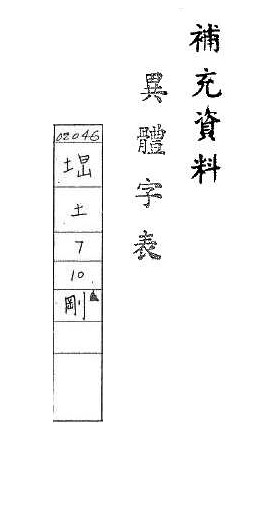 補充資料
異體字表
02046
土
7
10
剛